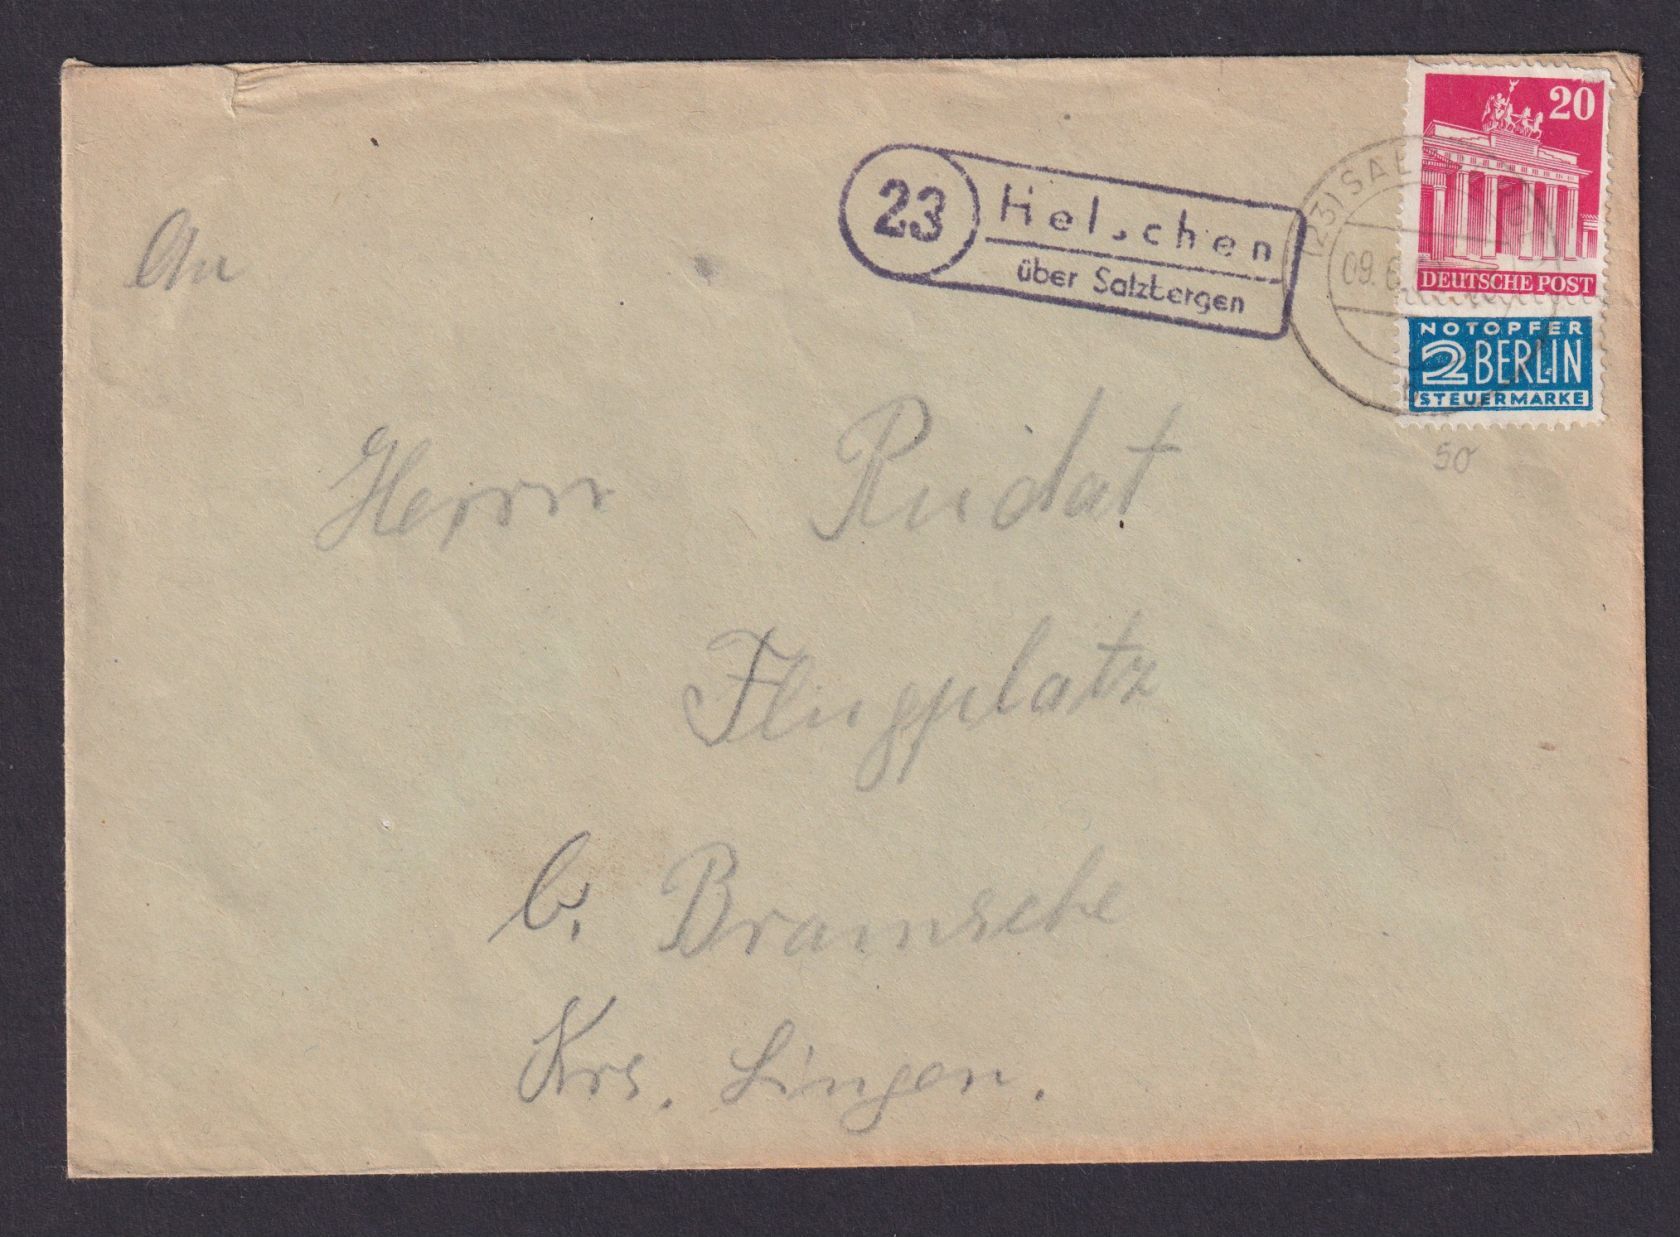 23
Helschen
über Salzbergen
(23) SAL
09.6.
20
DEUTSCHE POST
NOTOPFER
2 BERLIN
STEUERMARKE
50
An
Herrn Rudat
Flugplatz
b. Bramsche
Krs. Lingen.